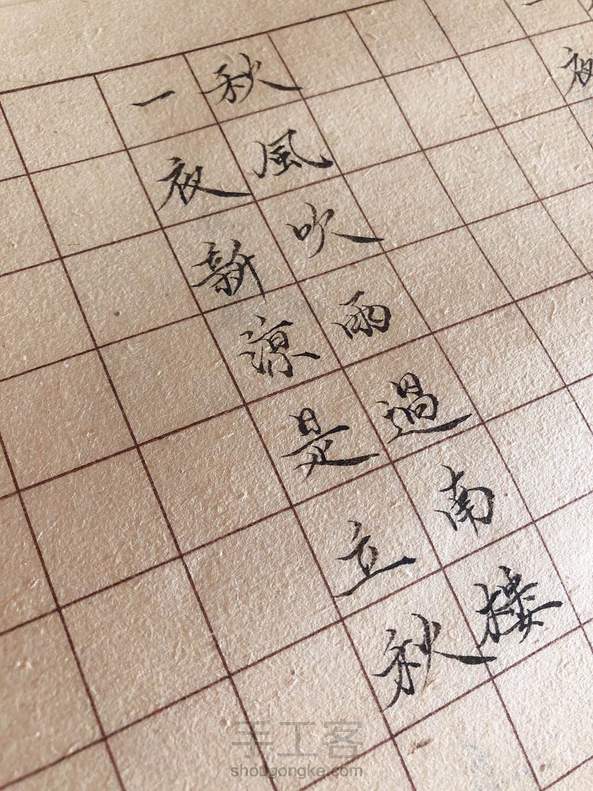 秋風吹雨過南樓
一夜新涼是立秋
夜
手工客
shougongke.com